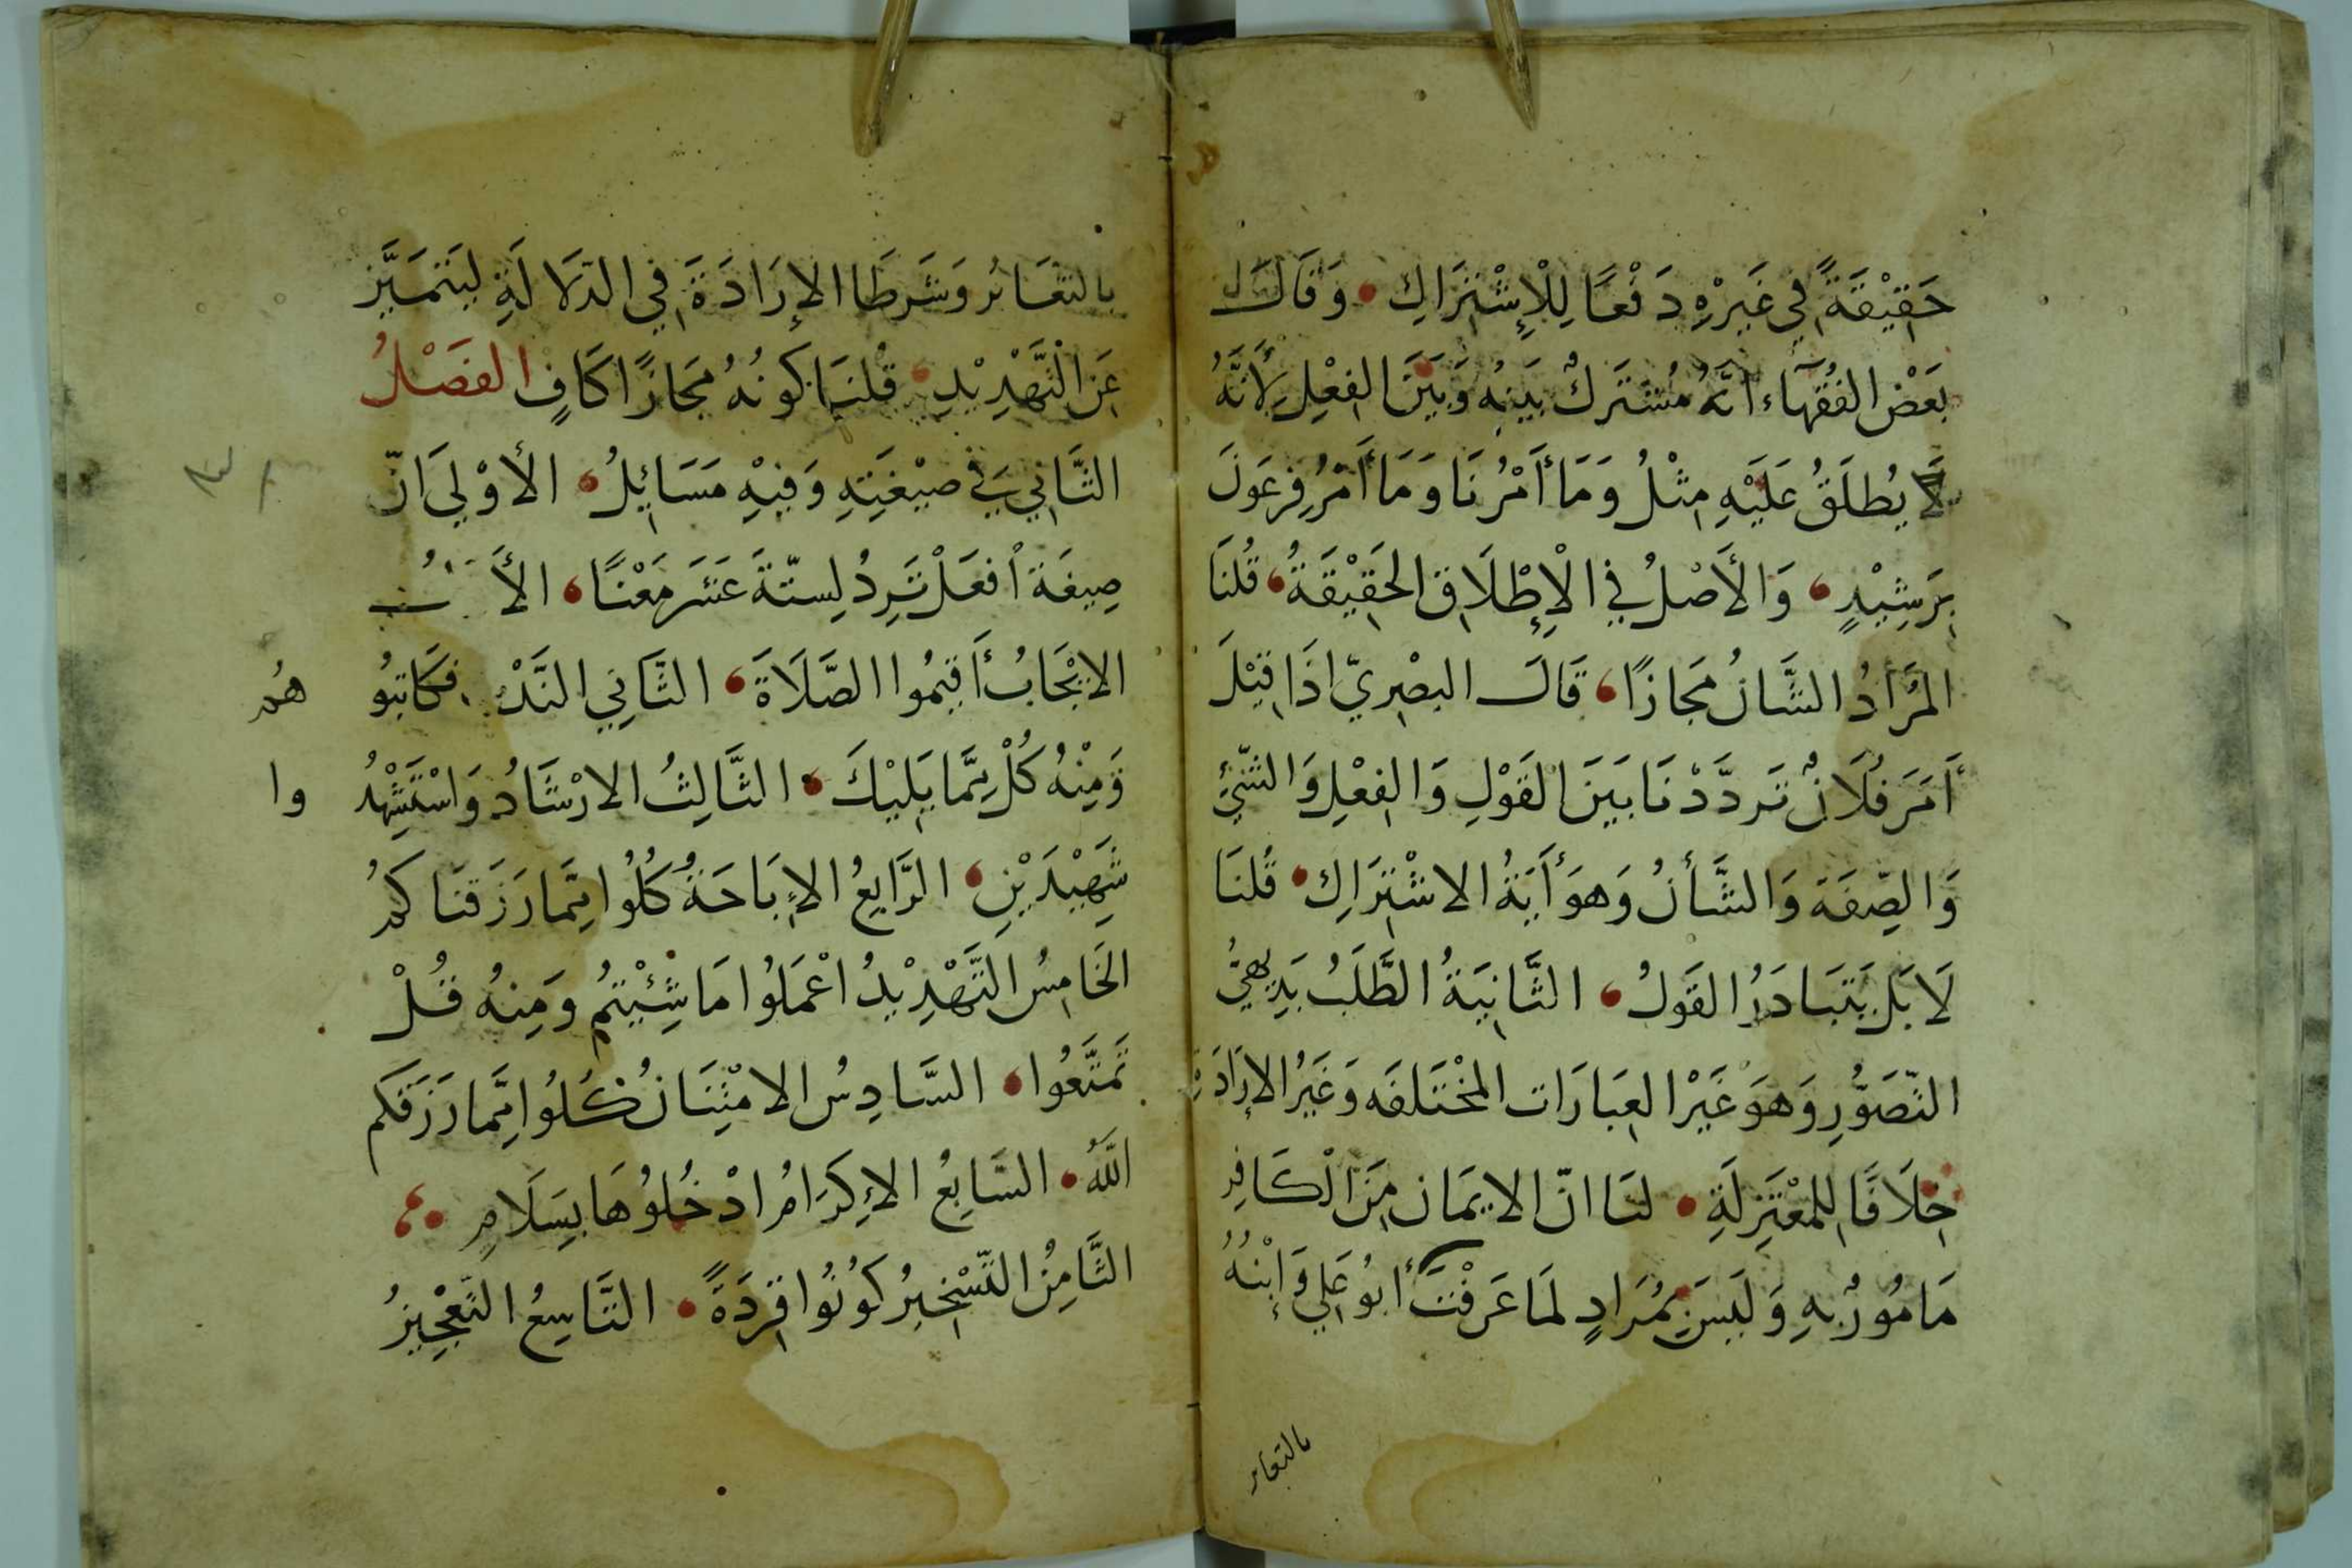 حَقِيْقَةً فِي غَيْرِهِ دَفْعًا لِلْإِشْتِرَاكِ وَقَالَ
بَعْضُ الفُقَهَآءِ أَنَّهُ مُشْتَرَكٌ بَيْنَهُ وَبَيْنَ الفِعْلِ لِأَنَّهُ
لَا يُطْلَقُ عَلَيْهِ مِثْلُ وَمَا أَمْرُنَا وَمَا أَمْرُ فِرْعَوْنَ
بِرَشِيْدٍ وَالأَصْلُ فِي الْإِطْلَاقِ الحَقِيْقَةُ قُلْنَا
المُرَادُ الشَّانُ مَجَازًا قَالَ البَصْرِيّ اذَا قِيْلَ
أَمَرَ فُلَانٌ تَرَدَّدْنَا بَيْنَ القَوْلِ وَالفِعْلِ وَالشَّيْءِ
وَالصِّفَة وَالشَّأنُ وَهوَ أَيَةُ الاشْتِرَاكِ قُلنَا
لَا بَلْ يَتَبَادَرُ القَوْلُ الثَّانِيَةُ الطَّلَبُ بَدِيْهِيُّ
التَّصَوُّرِ وَهوَ غَيْرُ العِبَارَات المُخْتَلفَه وَغَيْرُ الإِرَادَةِ
خِلَافًا لِلمُعْتَزِلَةِ لنَا انّ الايمَان مِنَ الْكَافِر
مَامُوْرٌ بِهِ وَلَيْسَ بِمُرَادٍ لمَا عَرَفْتَ أَبُو عَلِي وَإِبْنُهُ
بالتغَاير
بالتغَاير وَشَرطَا الإرَادَةَ فِي الدّلَالَةِ ليَتَمَيَّز
عَنِ التَّهْدِيْدِ قُلنَا كَونُهُ مَجَازًا كَافٍ الفَصْلُ
الثَّانِي فِي صِيْغَتِهِ وَفِيْهِ مَسَايِلُ الأَوْلي انّ
صِيغَة أفعَلْ تَرِدُ لِستّةَ عَشَر مَعْنًا
الايْجَابُ أَقِيْمُوا الصَّلَاةَ الثَّانِي النَّدْبُ فكَاتِبُو
هُم
وَمِنْهُ كُلْ مِمَّا يَلِيْكَ الثَّالِثُ الارْشَادُ وَاسْتَشْهِدُ
وا
شَهِيْدَيْنِ الرَّابِعُ الإِبَاحَةُ كُلُوا مِمَّا رَزَقنَاكمُ
الخَامِسُ التَّهْدِيْدُ اعْمَلُوا مَا شِئْيتُم وَمِنهُ قُلْ
تَمَتَّعُوا السَّادِسُ الامْتِنَانُ كُلُوا مِمَّا رَزَقَكم
اللّهُ السَّابِعُ الإِكرَامُ ادْخُلُوْهَا بِسَلَامٍ
الثَّامِنُ التَّسْخِيْرُ كُوْنُوا قِرَدَةً التَّاسِعُ التَّعْجِيْزُ